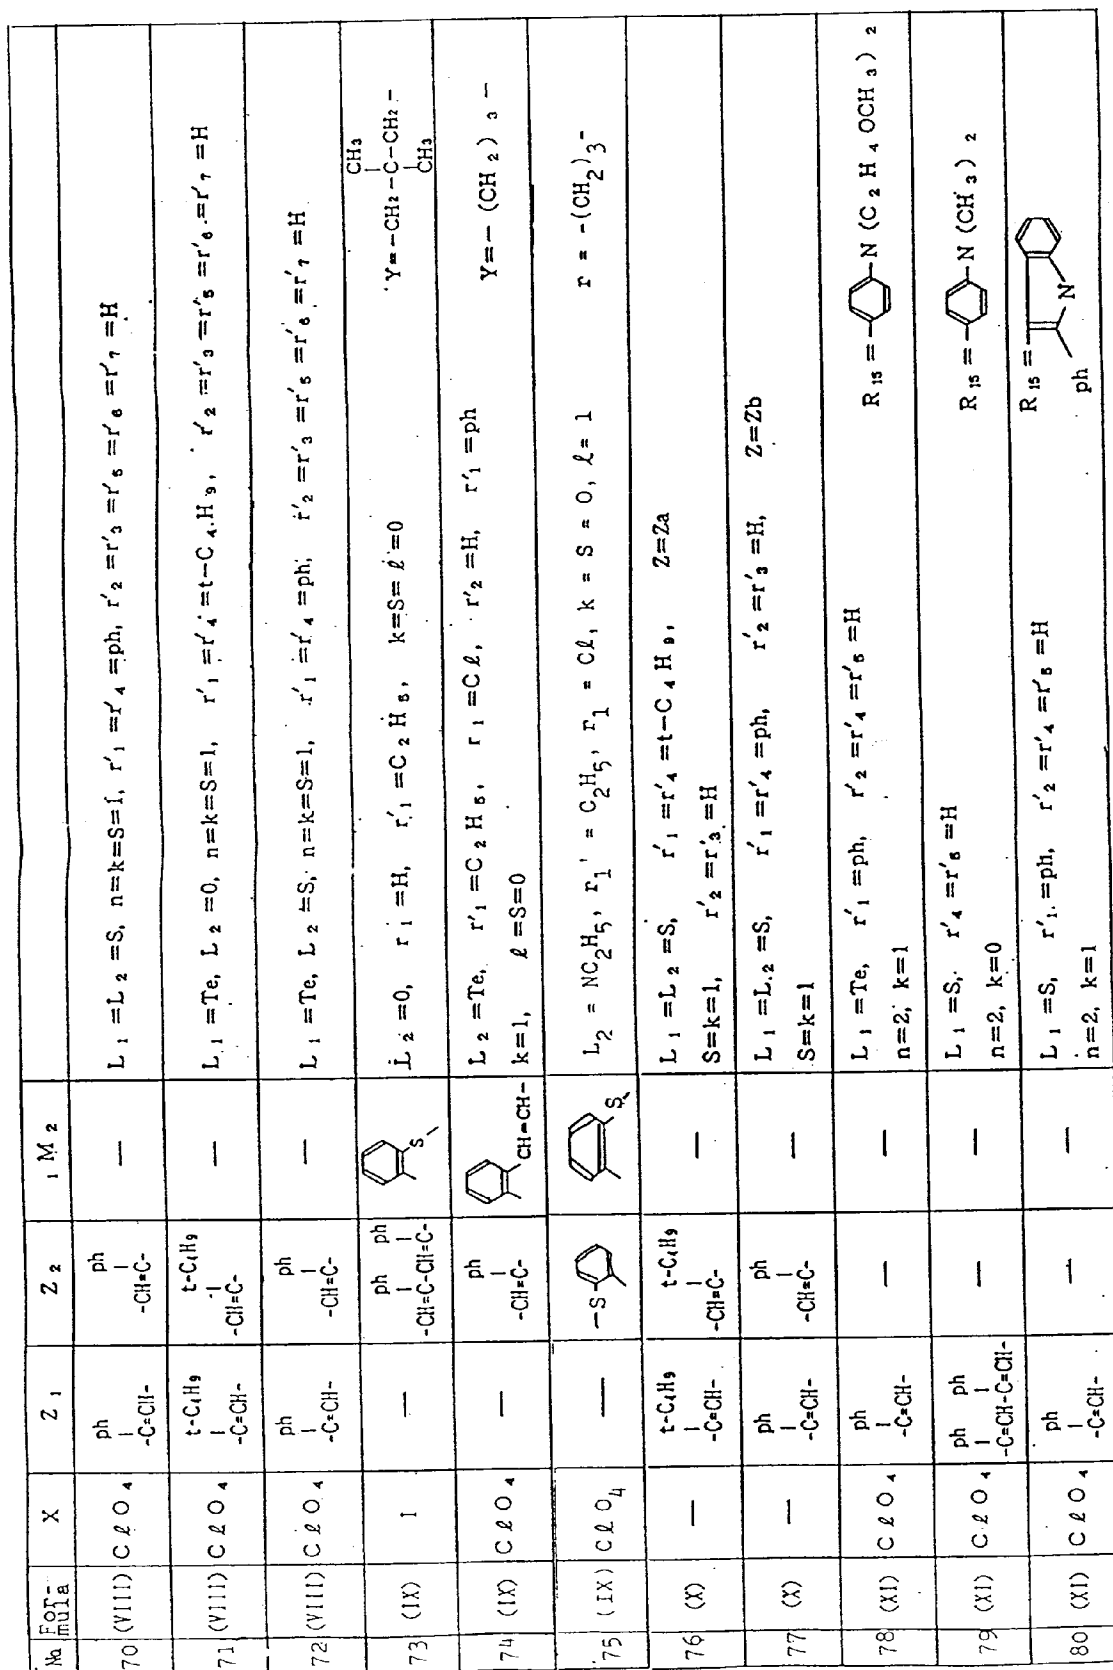 No Formula X Z1 Z2 M2
70 (VIII) ClO4 ph -C=CH- ph -CH=C- — L1=L2=S, n=k=S=1, r'1=r'4=ph, r'2=r'3=r'5=r'6=r'7=H
71 (VIII) ClO4 t-C4H9 -C=CH- t-C4H9 -CH=C- — L1=Te, L2=O, n=k=S=1, r'1=r'4=t-C4H9, r'2=r'3=r'5=r'6=r'7=H
72 (VIII) ClO4 ph -C=CH- ph -CH=C- — L1=Te, L2=S, n=k=S=1, r'1=r'4=ph, r'2=r'3=r'5=r'6=r'7=H
73 (IX) I — ph ph -CH=C-CH=C- S L2=O, r1=H, r'1=C2H5, k=S=ℓ=0 Y=-CH2-C-CH2- CH3 CH3
74 (IX) ClO4 — ph -CH=C- CH=CH- L2=Te, r'1=C2H5, r1=Cℓ, r'2=H, r'1=ph Y=-(CH2)3-
k=1, ℓ=S=0
75 (IX) ClO4 — -S- S L2 = NC2H5, r1' = C2H5, r1 = Cℓ, k = S = 0, ℓ = 1 r = -(CH2)3-
76 (X) — t-C4H9 -C=CH- t-C4H9 -CH=C- — L1=L2=S, r'1=r'4=t-C4H9, Z=Za
S=k=1, r'2=r'3=H
77 (X) — ph -C=CH- ph -CH=C- — L1=L2=S, r'1=r'4=ph, r'2=r'3=H, Z=Zb
S=k=1
78 (XI) ClO4 ph -C=CH- — — L1=Te, r'1=ph, r'2=r'4=r'5=H R15= -N(C2H4OCH3)2
n=2, k=1
79 (XI) ClO4 ph ph -C=CH-C=CH- — — L1=S, r'4=r'5=H R15= -N(CH3)2
n=2, k=0
80 (XI) ClO4 ph -C=CH- — — L1=S, r'1=ph, r'2=r'4=r'5=H R15= N ph
n=2, k=1